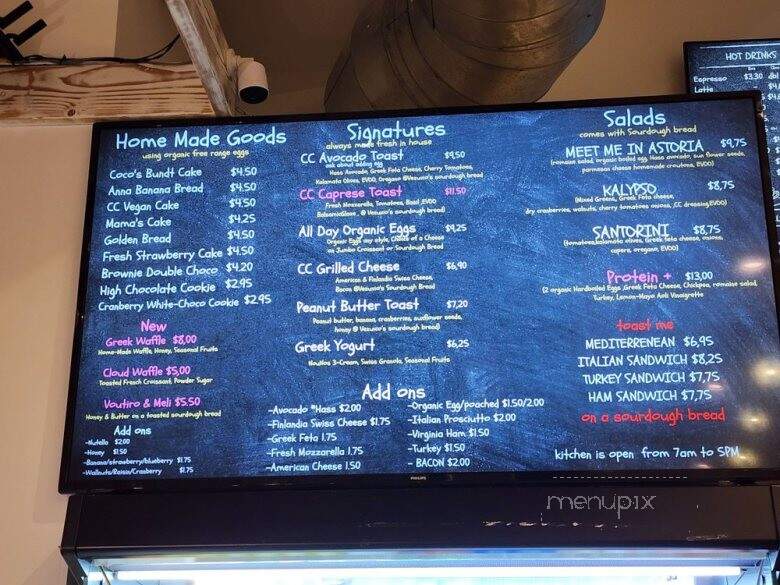 Home Made Goods
using organic free range eggs
Coco's Bundt Cake $4.50
Anna Banana Bread $4.50
CC Vegan Cake $4.50
Mama's Cake $4.25
Golden Bread $4.50
Fresh Strawberry Cake $4.50
Brownie Double Choco $4.20
High Chocolate Cookie $2.95
Cranberry White-Choco Cookie $2.95
New
Greek Waffle $8,00
Home-Made Waffle, Honey, Seasonal Fruits
Cloud Waffle $5,00
Toasted French Croissant, Powder Sugar
Voutiro & Meli $5.50
Honey & Butter on a toasted sourdough bread
Add ons
-Nutella $2.00
-Honey $1.50
-Banana/strawberry/blueberry $1.75
-Wallnuts/Raisin/Cranberry $1.75
Signatures
always made fresh in house
CC Avocado Toast $9,50
ask about adding egg
Hass Avocado, Greek Feta Cheese, Cherry Tomatoes,
Kalamata Olives, EVOO, Oregano @Vesuvio's sourdough bread)
CC Caprese Toast $11.50
Fresh Mozzarella, Tomatoes, Basil ,EVOO
BalsamicGlaze , @ Vesuvio's sourdough bread)
All Day Organic Eggs $9,25
Organic Eggs any style, Choice of a Cheese
on Jumbo Croissant or Sourdough Bread
CC Grilled Cheese $6,90
American & Finlandia Swiss Cheese,
Bacon @Vesuvio's Sourdough Bread
Peanut Butter Toast $7,20
Peanut butter, banana, cranberries, sunflower seeds,
honey @ Vesuvio's sourdough bread)
Greek Yogurt $6,25
Nouños 3-Cream, Swiss Granola, Seasonal Fruits
Add ons
-Avocado *Hass $2.00
-Finlandia Swiss Cheese $1.75
-Greek Feta 1.75
-Fresh Mozzarella 1.75
-American Cheese 1.50
-Organic Egg/poached $1.50/2.00
-Italian Prosciutto $2.00
-Virginia Ham $1.50
-Turkey $1.50
- BACON $2.00
Salads
comes with Sourdough bread
MEET ME IN ASTORIA $9,75
(romaine salad, organic boiled egg, Hass avocado, sun flower seeds,
parmesan cheese homemade croutons, EVOO)
KALYPSO $8,75
(Mixed Greens, Greek Feta cheese,
dry cranberries, walnuts, cherry tomatoes onions, ,CC dressing,EVOO)
SANTORINI $8,75
(tomatoes,kalamata olives, Greek feta cheese, onions,
capers, oregano, EVOO)
Protein + $13,00
(2 organic Hardboiled Eggs ,Greek Feta Cheese, Chickpea, romaine salad,
Turkey, Lemon-Mayo Anti Vinaigrette
toast me
MEDITERRENEAN $6,95
ITALIAN SANDWICH $8,25
TURKEY SANDWICH $7,75
HAM SANDWICH $7,75
on a sourdough bread
kitchen is open from 7am to 5PM
PHILIPS
menupix
HOT DRINKS
Espresso $3.30
Latte